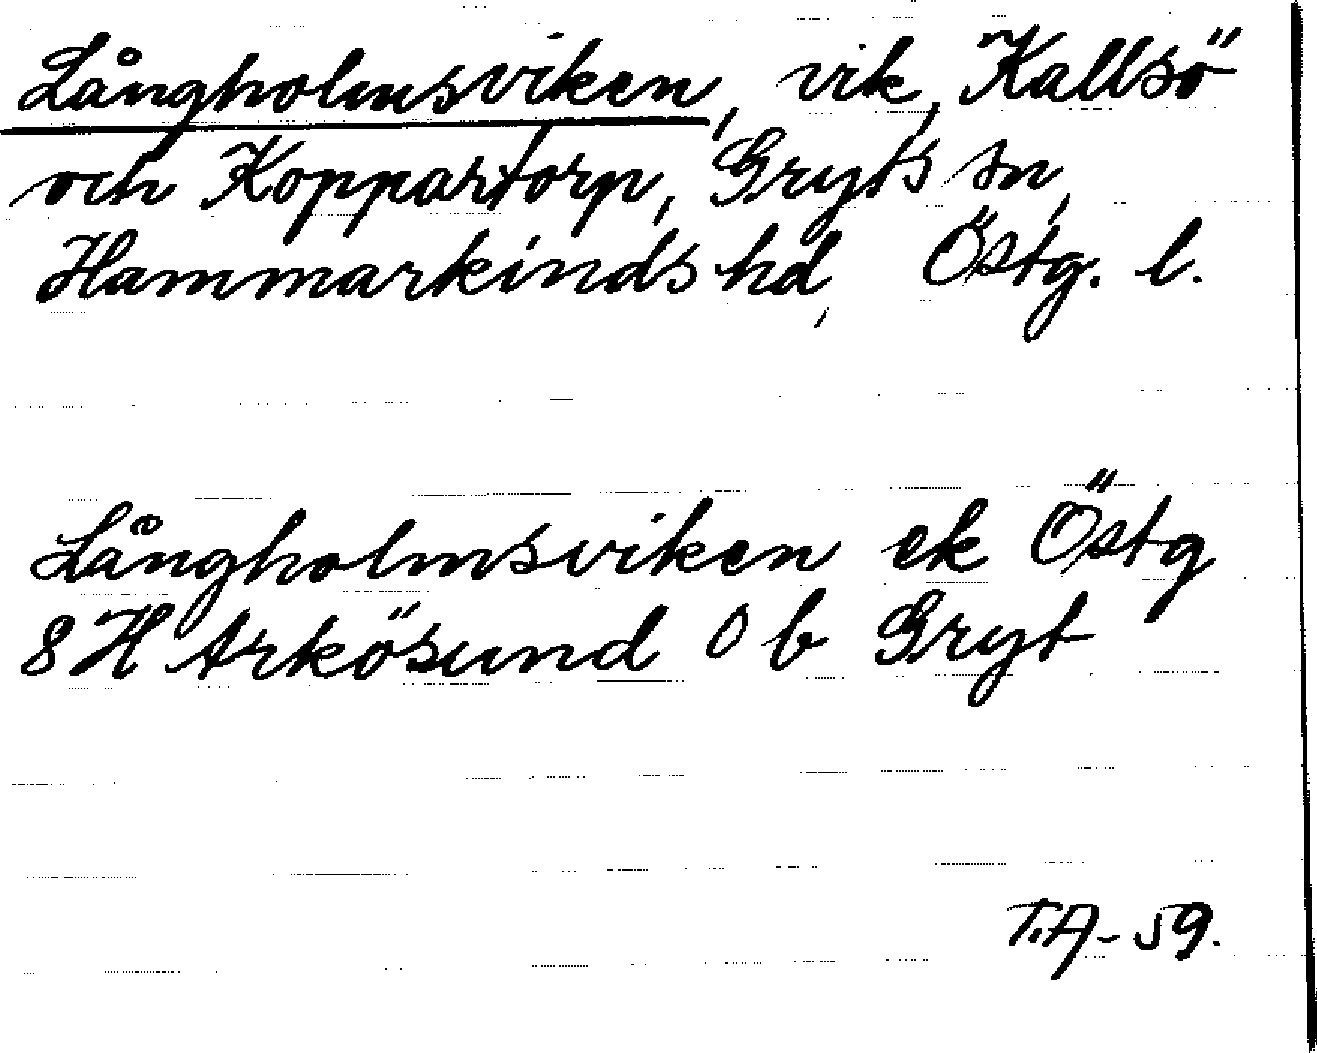 Långholmsviken, vik, Kallsö
och Koppartorp, Gryts sn,
Hammarkinds hd, Östg. l.
Långholmsviken ek Östg
8 H Arkösund 0 b Gryt
T.A-59.